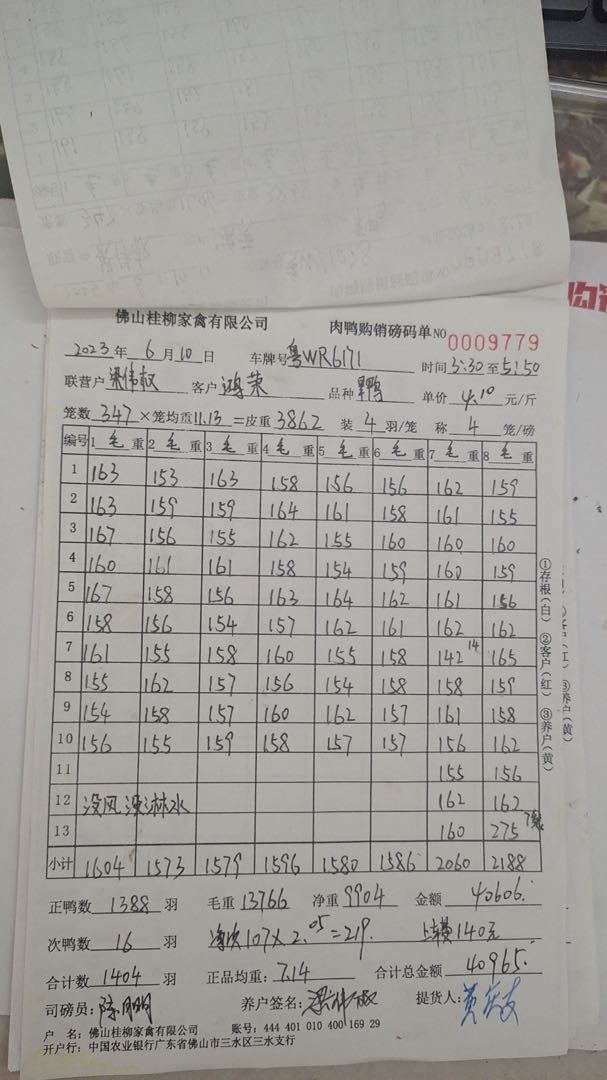 佛山桂柳家禽有限公司 肉鸭购销磅码单 NO 0009779
2023年 6月 10日 车牌号 粤WR6171 时间 3:30 至 5:50
联营户 梁伟权 客户 鸿荣 品种 单价 4.10 元/斤
笼数 347 ×笼均重 11.13 =皮重 3862 装 4 羽/笼 称 4 笼/磅
编号 1 毛 重 2 毛 重 3 毛 重 4 毛 重 5 毛 重 6 毛 重 7 毛 重 8 毛 重
1 163 153 163 158 156 156 162 159
2 163 159 159 164 161 158 161 155
3 167 156 155 162 155 160 160 160
4 160 161 161 158 154 159 160 159
5 167 158 156 163 164 162 161 156
6 158 156 154 157 162 161 162 162
7 161 155 158 160 155 158 142 14 165
8 155 162 157 156 154 158 158 159
9 154 158 157 160 162 157 161 158
10 156 155 159 158 157 157 156 162
11 155 156
12 没风没淋水 162 162
13 160 275 7笼
小计 1604 1573 1579 1596 1580 1586 2060 2188
①存根(白) ②客户(红) ③养户(黄)
正鸭数 1388 羽 毛重 13766 净重 9904 金额 40606
次鸭数 16 羽 107×2.05=219. 140元
合计数 1404 羽 正品均重: 7.14 合计总金额 40965
司磅员: 养户签名: 梁伟权 提货人:
户 名: 佛山桂柳家禽有限公司 账号: 444 401 010 400 169 29
开户行: 中国农业银行广东省佛山市三水区三水支行